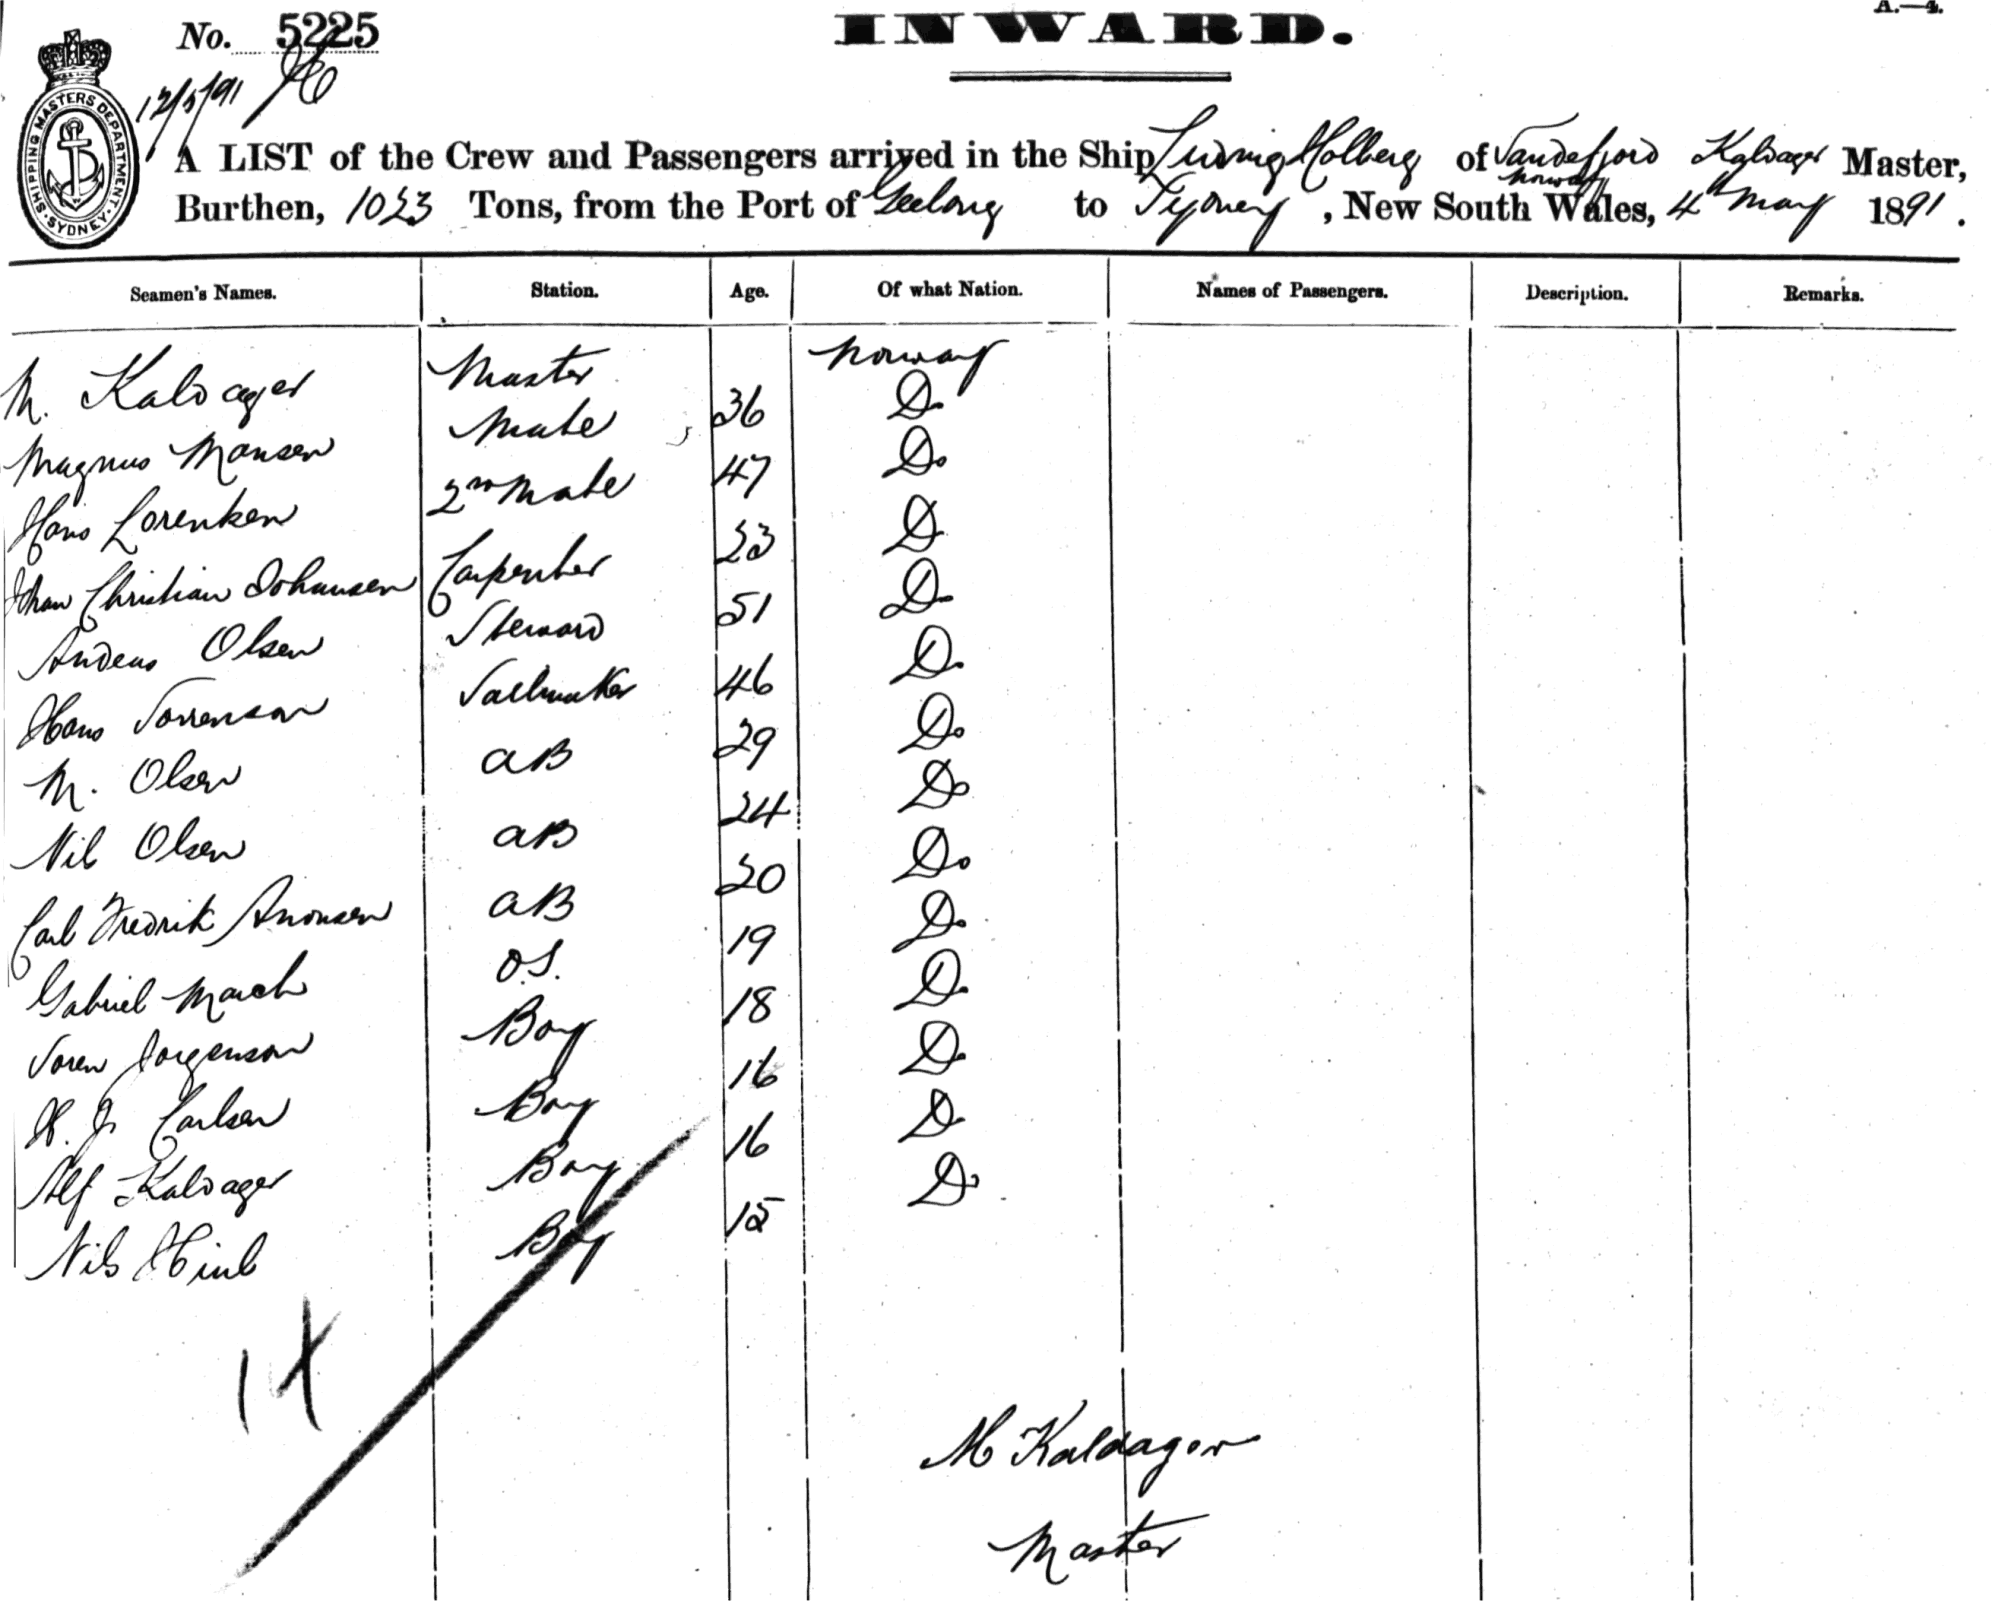 A.—4.
No. 5225
INWARD.
12/5/91
SHIPPING MASTERS DEPARTMENT. SYDNEY.
A LIST of the Crew and Passengers arrived in the Ship Ludvig Holberg of Sandefjord Kaldager Master,
Norway
Burthen, 1023 Tons, from the Port of Geelong to Sydney, New South Wales, 4th May 1891.
Seamen's Names. Station. Age. Of what Nation. Names of Passengers. Description. Remarks.
M. Kaldager Master Norway
Magnus Mansen Mate 36 Do
Hans Lorenken 2nd Mate 47 Do
Johan Christian Johansen Carpenter 23 Do
Andeas Olsen Steward 51 Do
Hans Sorrenson Sailmaker 46 Do
M. Olsen AB 29 Do
Nils Olsen AB 24 Do
Carl Fredrik AB 20 Do
Gabriel March O.S. 19 Do
Soren Jorgenson Boy 18 Do
H. J. Carlsen Boy 16 Do
Alf Kaldager Boy 16 Do
Nils Boy 15 Do
14
M Kaldager
Master